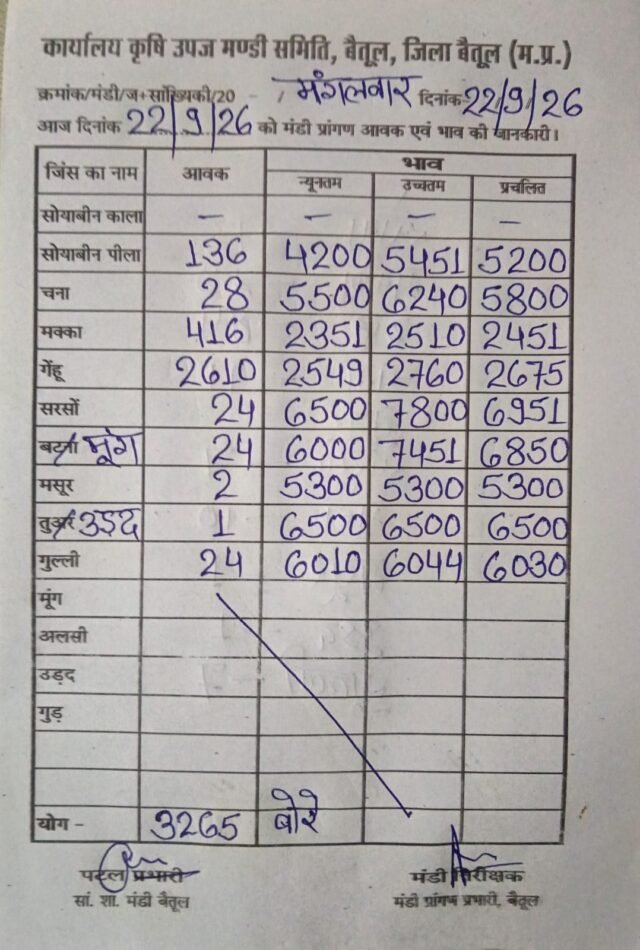 कार्यालय कृषि उपज मण्डी समिति, बैतूल, जिला बैतूल (म.प्र.)
क्रमांक/मंडी/ज+सांख्यिकी/20 - , मंगलवार दिनांक 22/9/26
आज दिनांक 22/9/26 को मंडी प्रांगण आवक एवं भाव की जानकारी।
जिंस का नाम आवक भाव
न्यूनतम उच्चतम प्रचलित
सोयाबीन काला - - - -
सोयाबीन पीला 136 4200 5451 5200
चना 28 5500 6240 5800
मक्का 416 2351 2510 2451
गेंहू 2610 2549 2760 2675
सरसों 24 6500 7800 6951
बटना मूंग 24 6000 7451 6850
मसूर 2 5300 5300 5300
तुअर उड़द 1 6500 6500 6500
गुल्ली 24 6010 6044 6030
मूंग
अलसी
उड़द
गुड़
योग - 3265 बोरे
पटल प्रभारी मंडी निरीक्षक
सां. शा. मंडी बैतूल मंडी प्रांगण प्रभारी, बैतूल